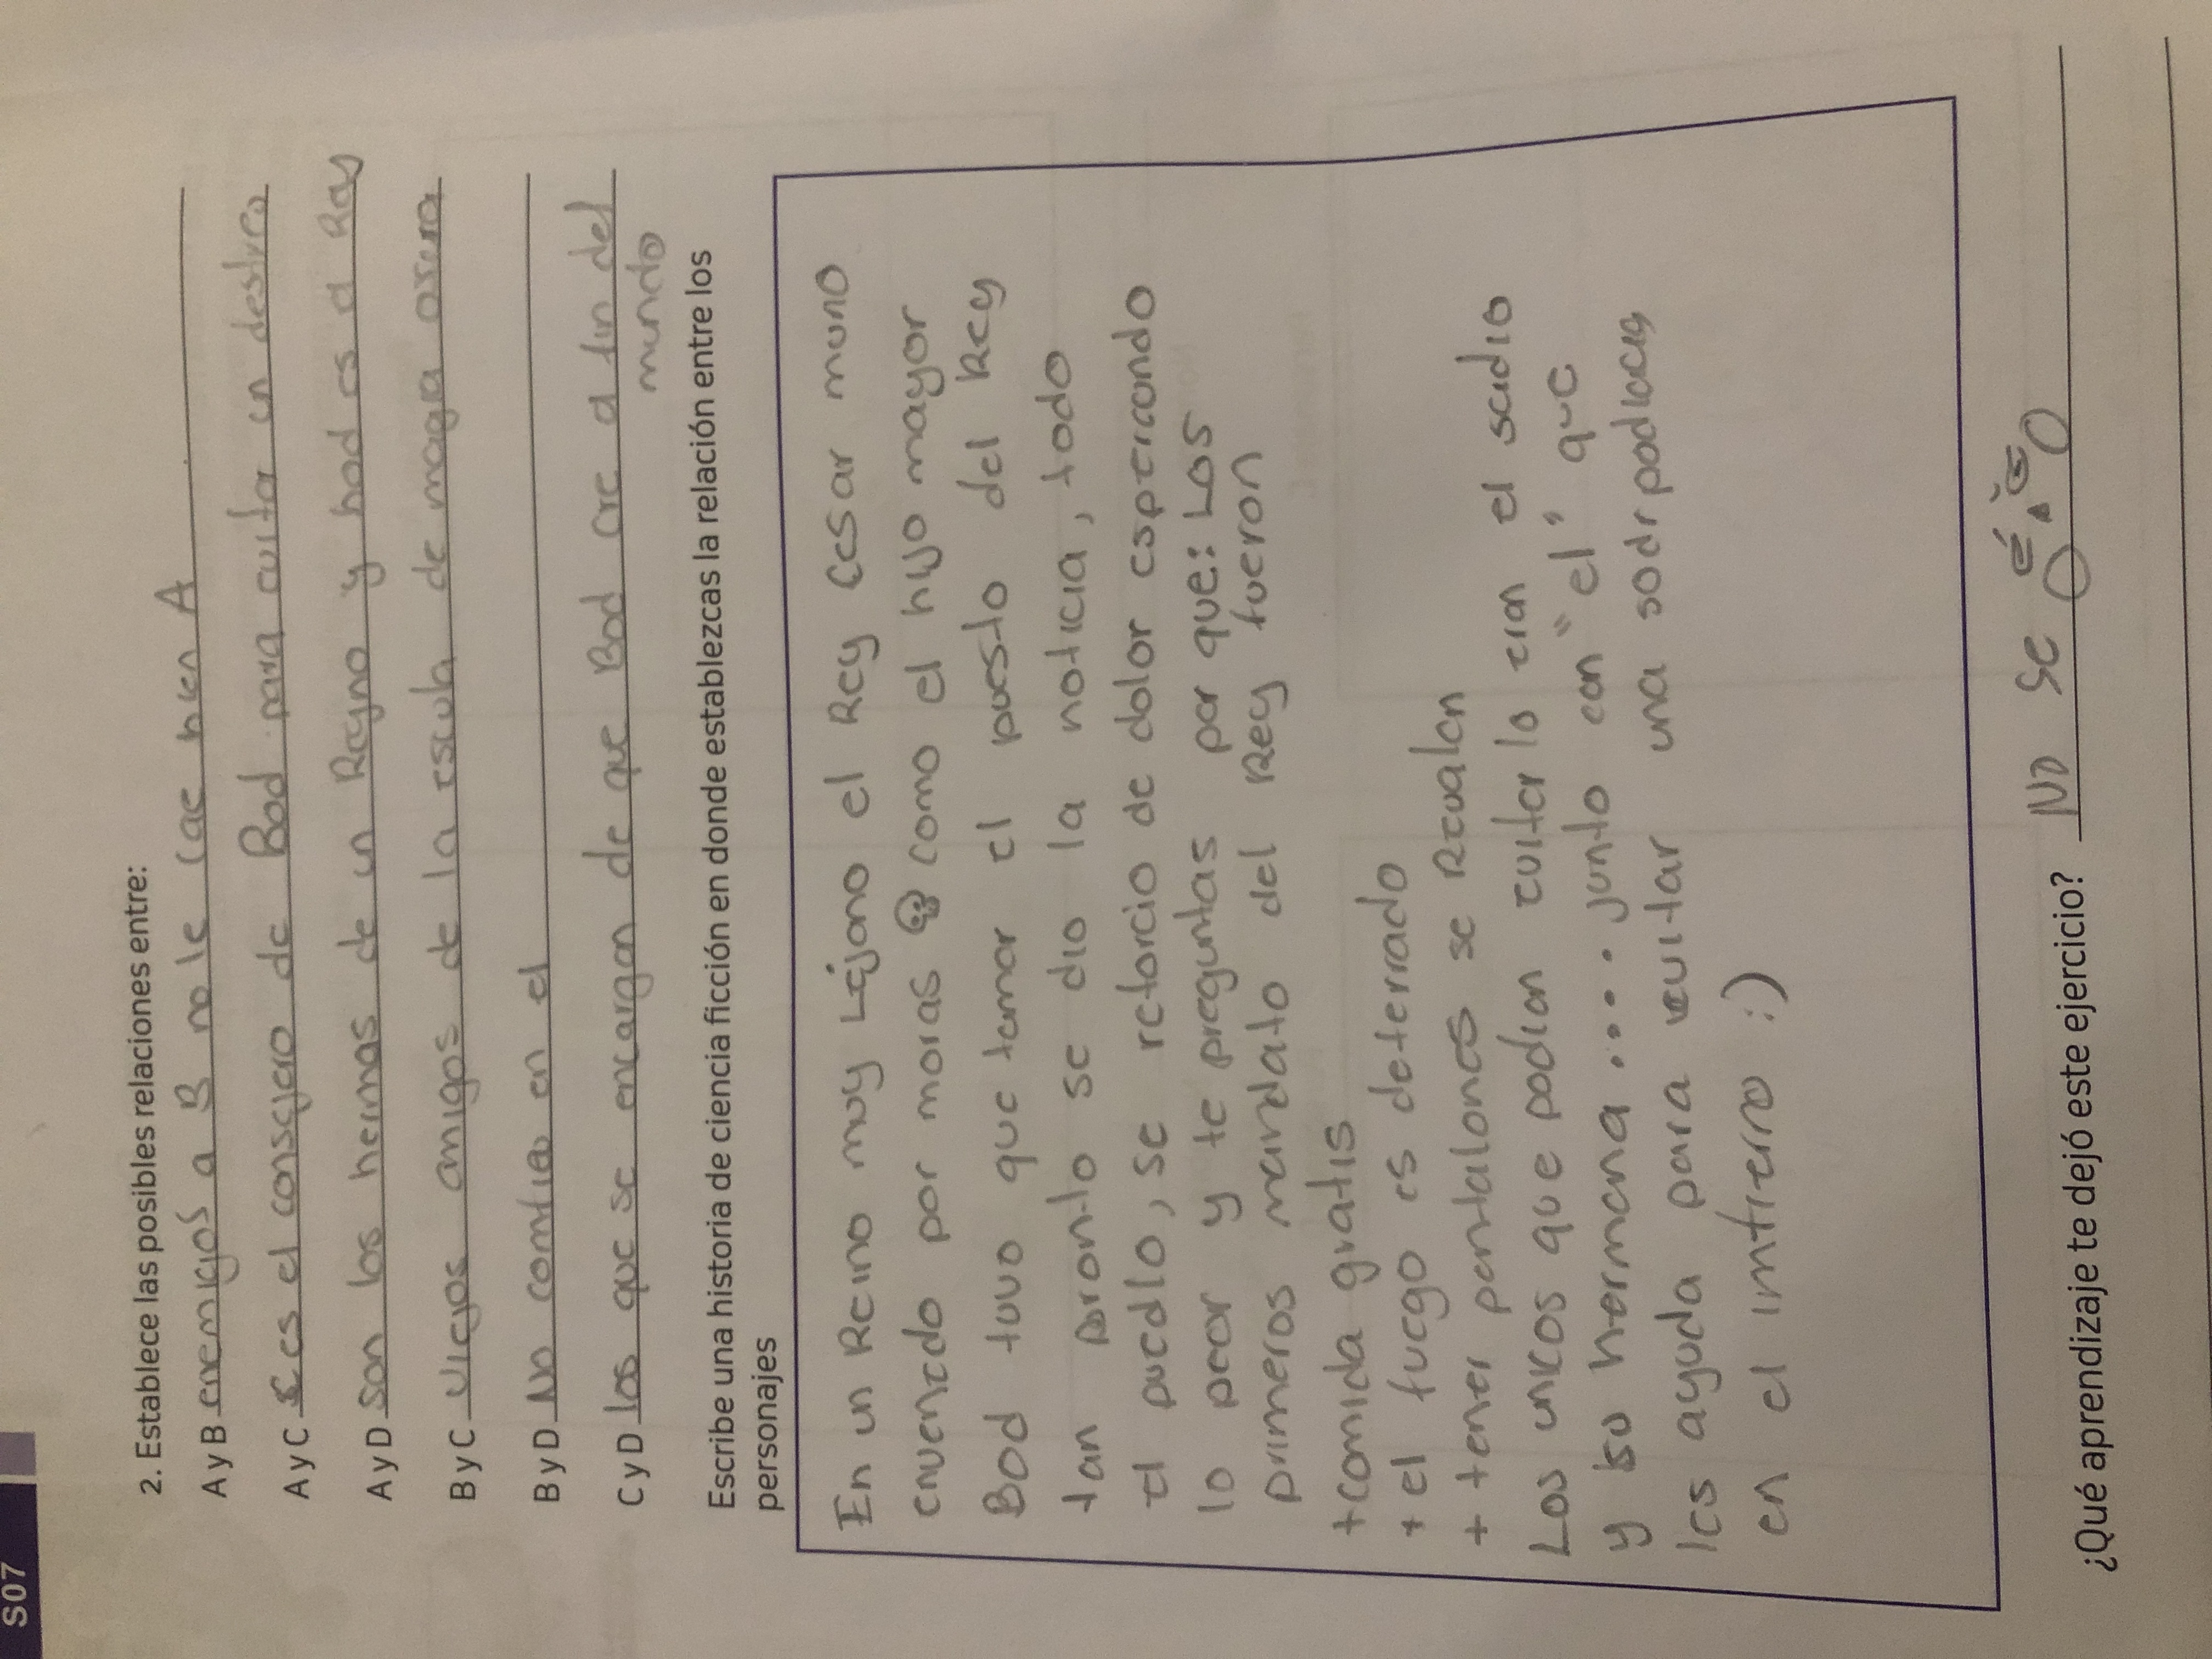 S07
2. Establece las posibles relaciones entre:
A y B enemigos a B no le cae bien A
A y C es el consejero de Bod para evitar un destivo
A y D son los hemas de un Reyno y bod es d Ray
B y C viejos amigos de la escula de magia oscura
B y D No comfia en el
C y D los que se encargan de que Bod cre a fin del
mundo
Escribe una historia de ciencia ficción en donde establezcas la relación entre los
personajes
En un Reino muy Lejano el Rey Cesar murio
envenedo por moras como el hijo mayor
Bod tuvo que tomar el puesto del Rey
tan pronto se dio la noticia, todo
el pueblo, se retorcio de dolor espercondo
lo peor y te preguntas por que: Los
primeros mandato del Rey fueron
+ comida gratis
+ el fuego es deterrado
+ tener pantalones se Recualan
Los unicos que podian evitarlo eran el sadio
y su hermana.... junto con "el" que
les ayuda para evitar una
en el imfierno :)
¿Qué aprendizaje te dejó este ejercicio? No se